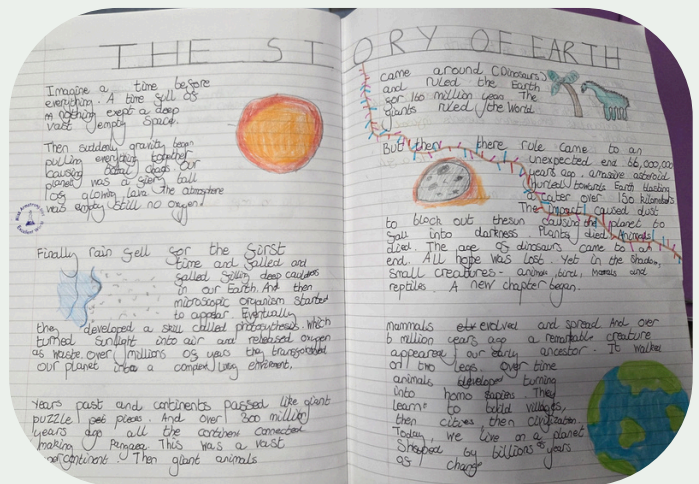 THE STORY OF EARTH
Imagine a time before
everything. A time full of
nothing exept a deep
vast empty space.
Then suddenly gravity began
pulling everything together
causing Our
planet was a fiery ball
of glowing lava the atmosphere
was empty still no oxygen
Finally rain fell for the first
time and falled and
falled filling deep
in our Earth. And then
microscopic organism started
to appear. Eventually
they developed a skill called which
turned sunlight into air and released oxygen
as waste. over millions of years they transformed
our planet into a complex living
Years past and continents passed like giant
puzzle pieces. And over 300 million
years ago all the continent connected
making Pangea This was a vast
Then giant animals
came around (Dinosaurs)
and ruled the Earth
for 160 million years The
giants ruled the World.
But then there rule came to an
unexpected end 66,000,000
years ago, a masive asteroid
hurtled towards Earth blasting
a crater over 150 kilometers
The impact caused dust
to block out the sun causing the planet to
fall into darkness. Plants died Animals
died. The age of dinosaurs came to an
end. All hope was lost. Yet in the shadow,
small creatures - animals, bird, and
reptiles. A new chapter began.
mammals evolved and spread And over
6 million years ago a remarkable creature
appeared, our early ancestor - It walked
on two legs. over time
animals turning
into homo sapiens. They
learnt to build villages,
then citoes then civilization.
Today, we live on a planet
Shaped by billions of years
of change